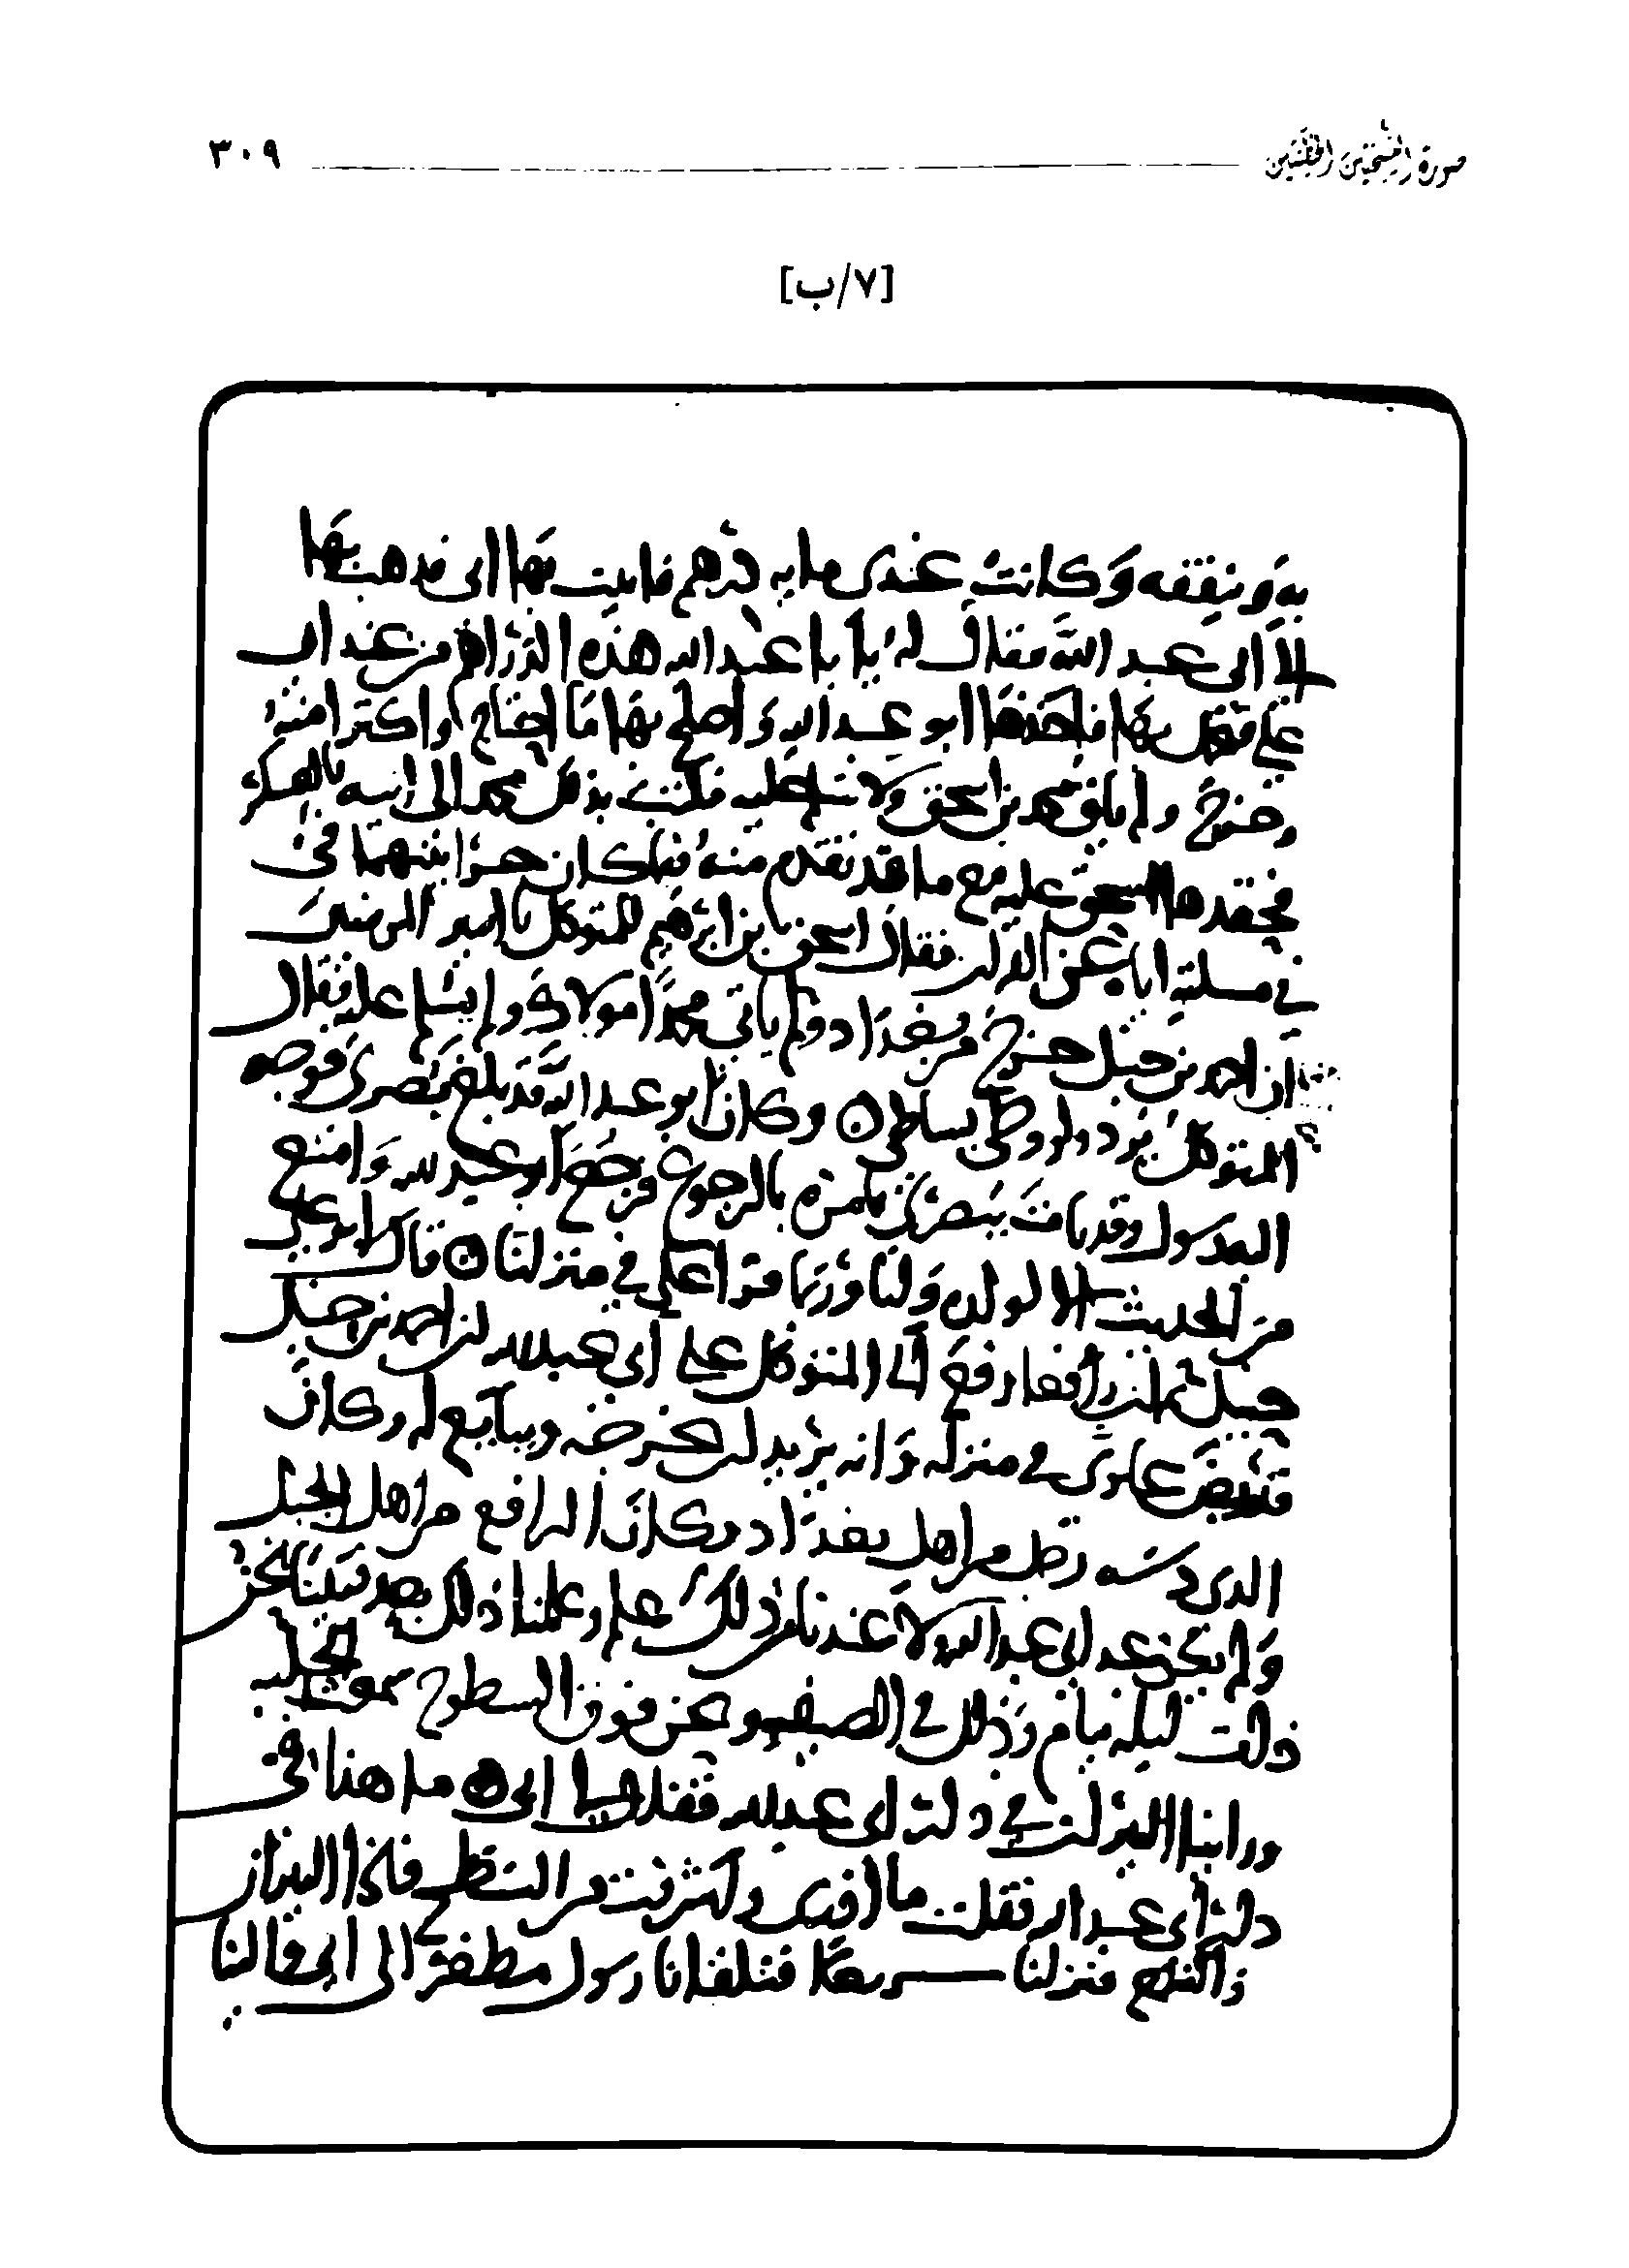 صورة النسختين الخطيتين ٣٠٩
[٧/ب]
به وينفقه وكانت عندى مايه درهم فاتيت بها ابى فذهب بها
الى ابى عبد الله فقال له يا با عبد الله هذه الدراهم من عند ابى
على فقبل بها فاخذها ابو عبد الله واصلح بها ما احتاج واكترا منه
وخرج ولم يلق محمد بن اسحق ولا سلم عليه فكتب بذلك محمد الى ابيه بالعسكر
فحقدها اسحق عليه مع ما قد تقدم منه فيما كان جرا بينهما فى
فى مسلته اياه عن فقال اسحق بن ابرهيم للمتوكل يا امير المومنين
ان احمد بن حنبل خرج من بغداد ولم ياتى محمدا مولاك ولم يسلم عليه فقال
المتوكل يرد ولو وطى بساطى ن وكان ابو عبد الله قد بلغ بصرى فوجه
اليه رسول وقد بات ببصرى يامره بالرجوع فرجع ابو عبد الله وامتنع
من الحديث الا لولده ولنا وربما قرا على فى منزلنا ن قال ابو على
حنبل ثم ان رافعا رفع الى المتوكل على ابى عبد الله ان احمد بن حنبل
علوى فى منزله وانه يريد ان يخرجه ويبايع له وكان
الذى دسه رجل من اهل بغداد وكان الرافع من اهل الجبل
ولم يكن عند ابى عبد الله ولا عندنا من ذلك علم وعلمنا ذلك بعد فبينا نحن
ذات ليله نيام وذلك فى الصيف ونحن فوق السطوح سمعنا الجلبه
وراينا النيران فى دار ابى عبد الله فقال لى ابى ن ما هنا فى
دار ابى عبد الله فقلت ما ادرى واشرفت من السطح فاذا النيران
والشمع فنزلنا سريعا فتلقانا رسول مظفر الى ابى قال لنا